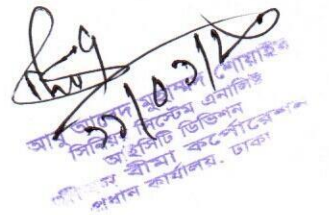 ২১/০১/২০
আবু আহমেদ মুহাম্মদ শোয়াইব
সিনিয়র সিস্টেম এনালিস্ট
আইসিটি ডিভিশন
বীমা কর্পোরেশন
প্রধান কার্যালয়, ঢাকা